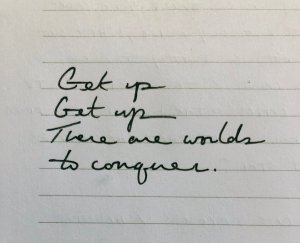 Get up
Get up
There are worlds
to conquer.